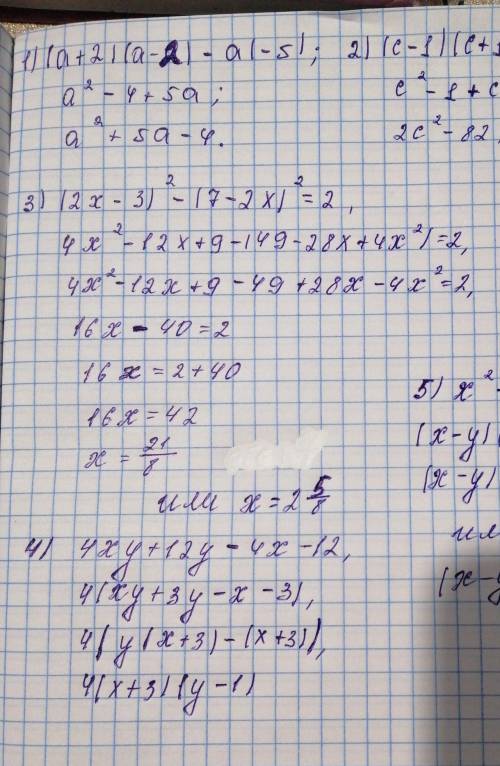 1) (a+2)(a-2) - a(-5); 2) (c-1)(c+
a² - 4 + 5a; c² - 1 + c
a² + 5a - 4. 2c² - 82,
3) (2x - 3)² - (7 - 2x)² = 2,
4x² - 12x + 9 - (49 - 28x + 4x²) = 2,
4x² - 12x + 9 - 49 + 28x - 4x² = 2,
16x - 40 = 2
16x = 2 + 40
16x = 42
x = 21/8
или x = 2 5/8
5) x²
(x-y)
(x-y)
ил
(x-y
4) 4xy + 12y - 4x - 12,
4(xy + 3y - x - 3),
4(y(x+3) - (x+3)),
4(x+3)(y-1)